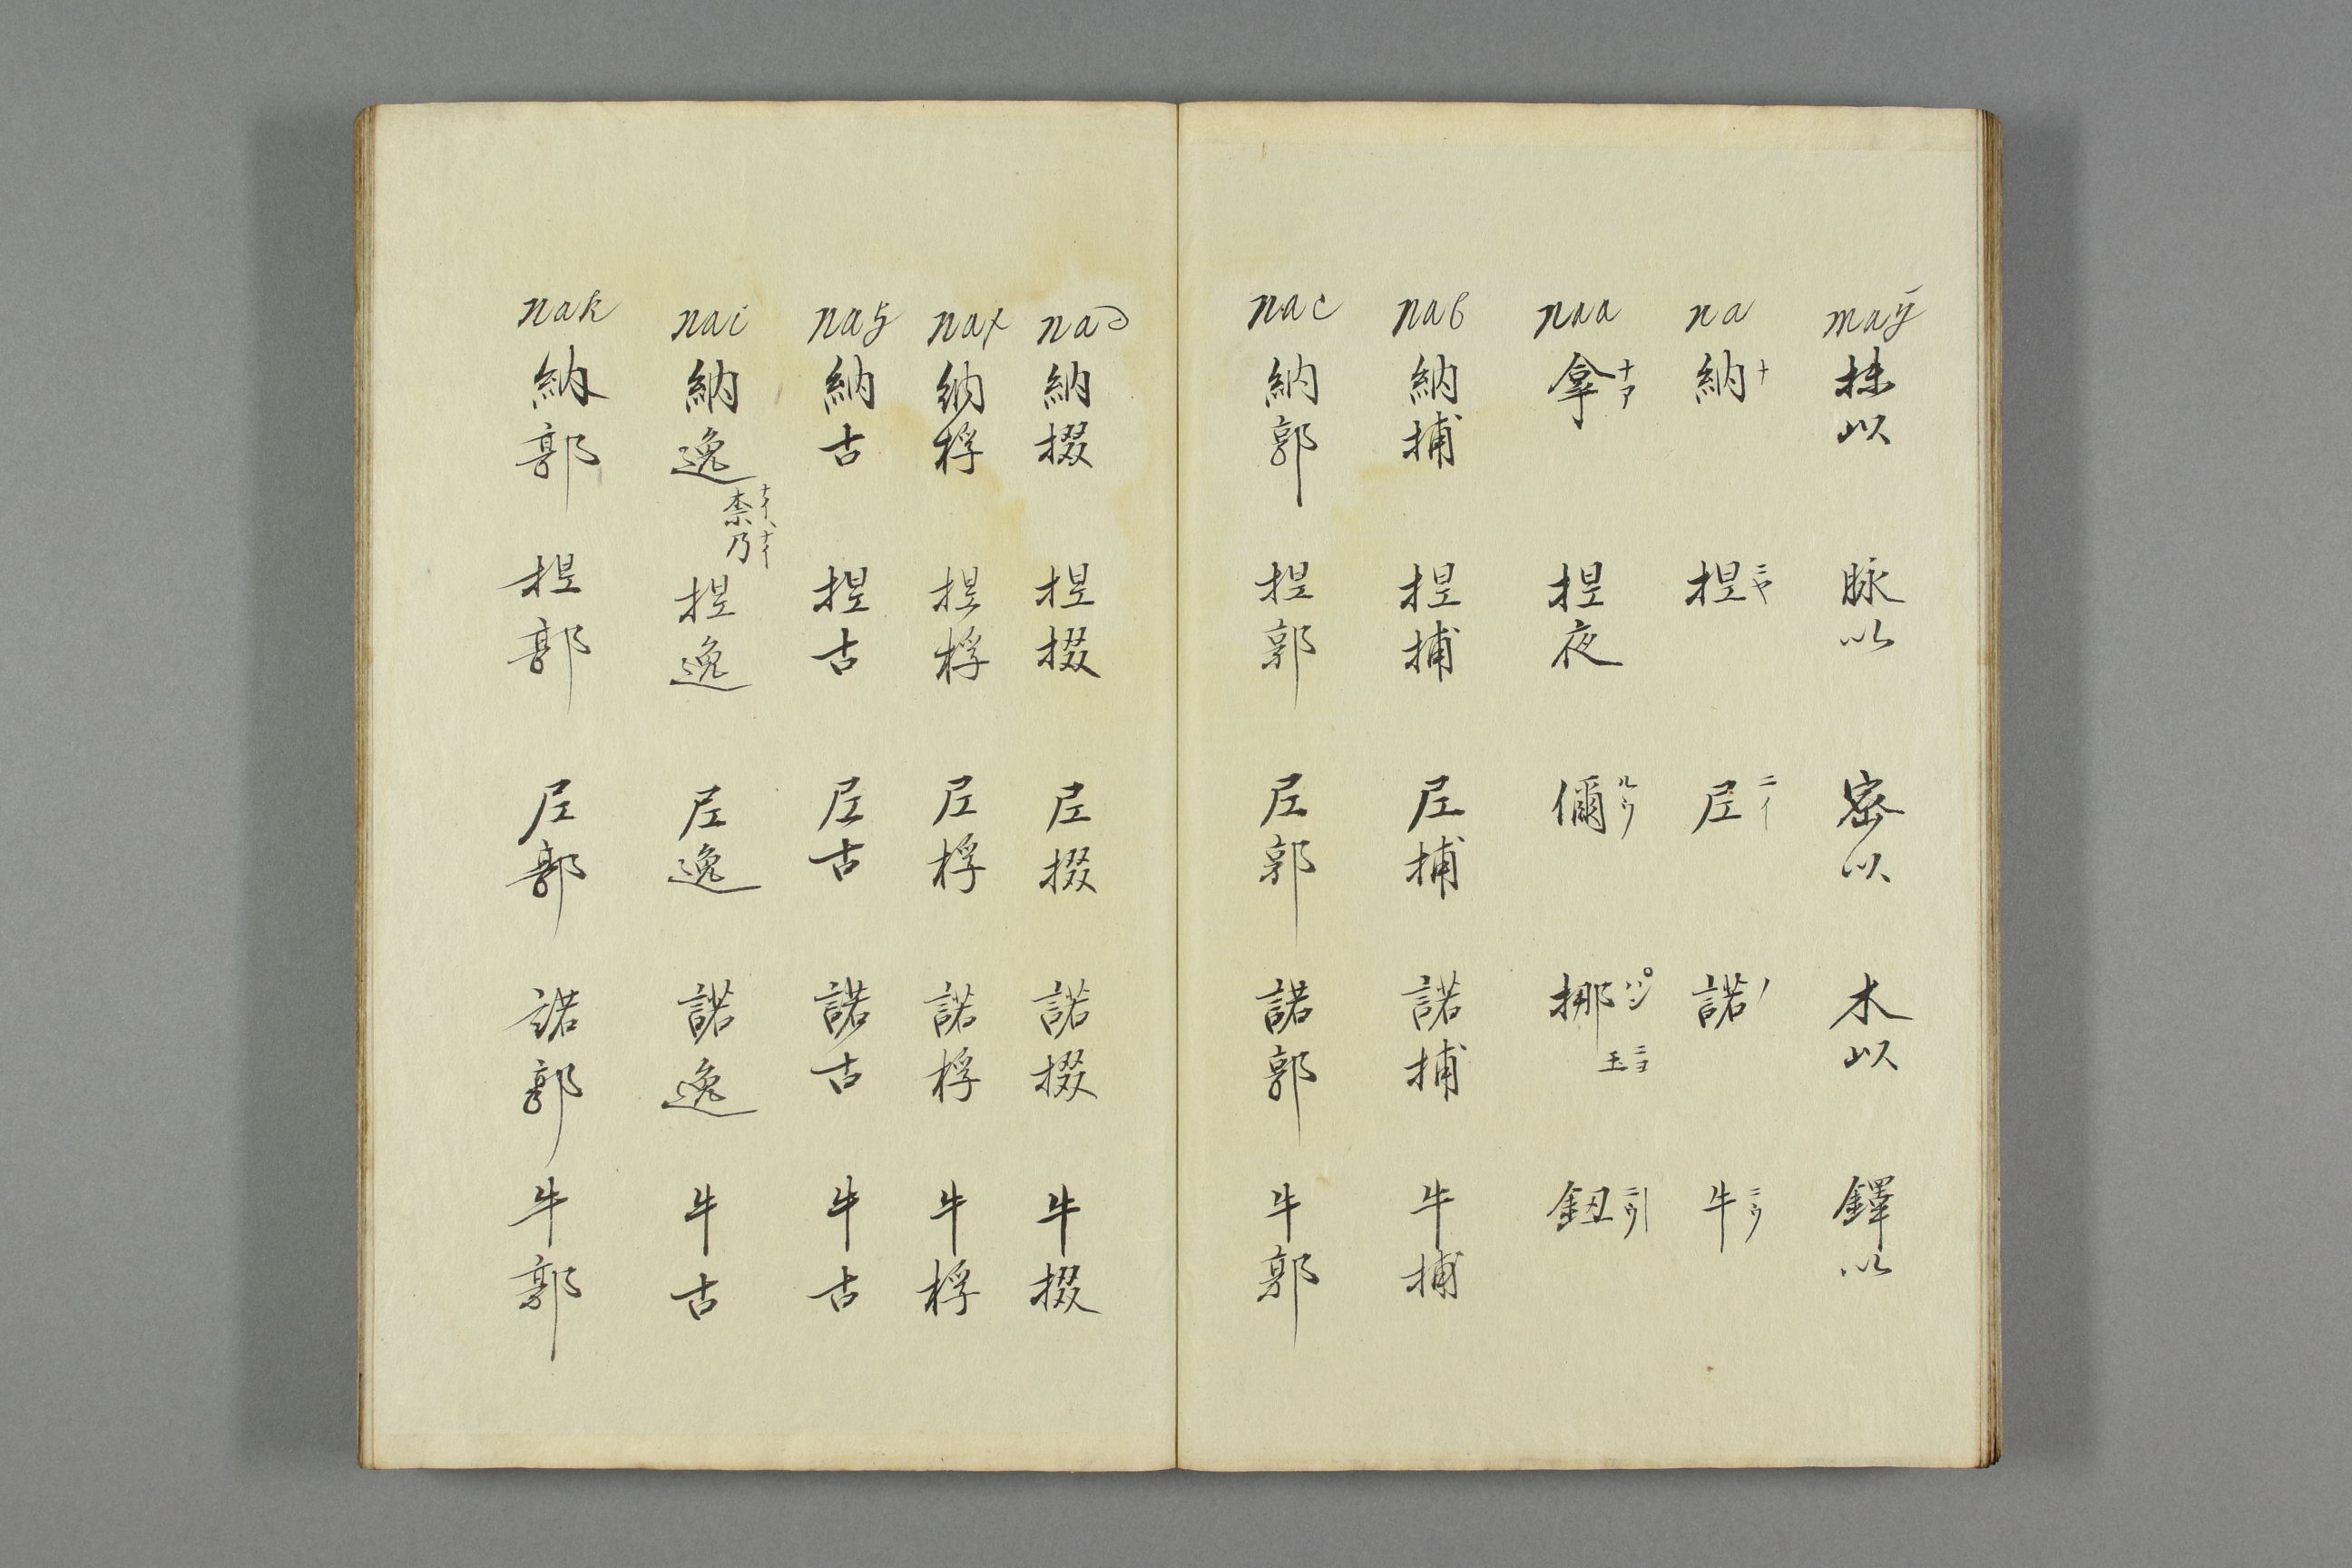 maÿ 抹以 脉以 密以 木以 鐸以
na 納ナ 捏ニヤ 𡰱ニイ 諾ノ 牛ニウ
naa 拿ナア 捏夜 儞ルウ 挪 玉ニヨ 鈕ニウ
nab 納捕 捏捕 𡰱捕 諾捕 牛捕
nac 納郭 捏郭 𡰱郭 諾郭 牛郭
nad 納掇 捏掇 𡰱掇 諾掇 牛掇
naf 納桴 捏桴 𡰱桴 諾桴 牛桴
nag 納古 捏古 𡰱古 諾古 牛古
nai 納逸 柰ナイ乃ナイ 捏逸 𡰱逸 諾逸 牛古
nak 納郭 捏郭 𡰱郭 諾郭 牛郭